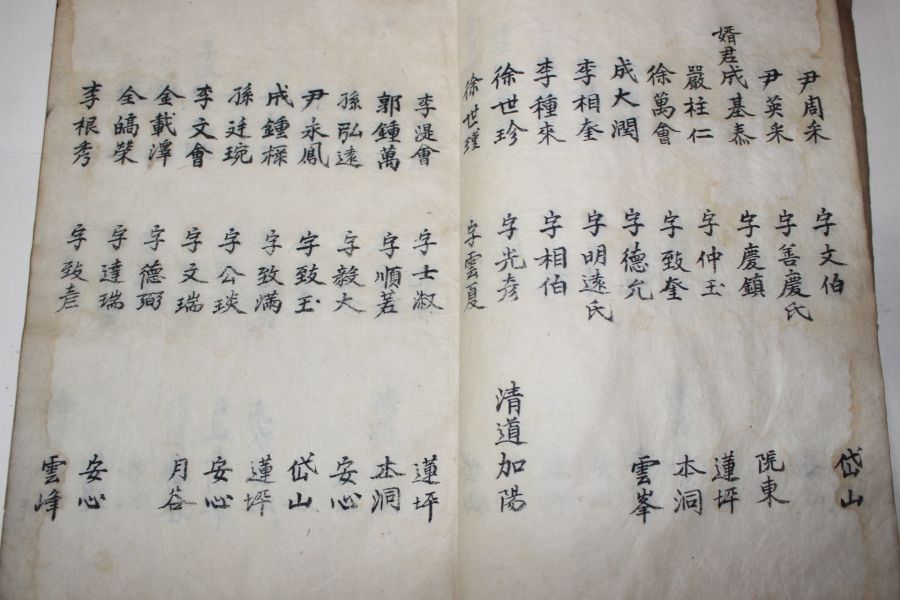 尹周釆 字文伯 岱山
尹英釆 字善慶氏
婿君成基泰 字慶鎮 院東
嚴柱仁 字仲玉 蓮坪
徐萬會 字致奎 本洞
成大潤 字德允 雲峯
李相奎 字明遠氏
李種來 字相伯
徐世珍 字光彦 清道加陽
徐世瑾 字雲夏
李湜會 字士淑 蓮坪
郭鍾萬 字順若 本洞
孫弘遠 字毅大 安心
尹永鳳 字致玉 岱山
成鍾 字致滿 蓮坪
孫廷琬 字公琰 安心
李文會 字文瑞 月谷
金載澤 字德弼
全皜榮 字達瑞 安心
李根秀 字致彦 雲峰